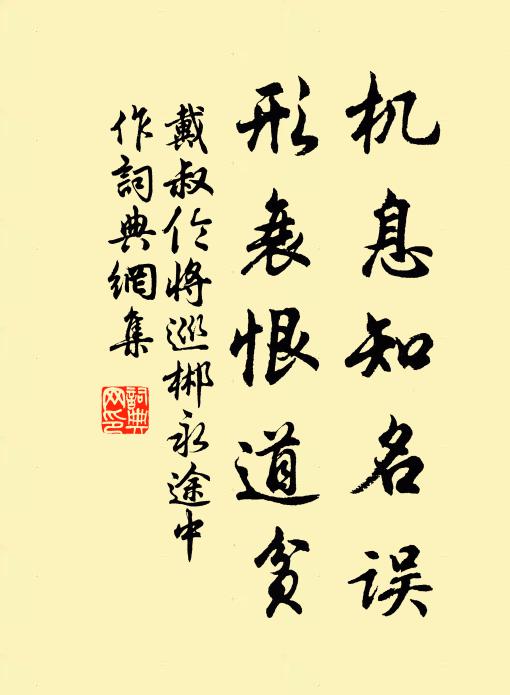 机息知名误
形衰恨道贫
戴叔伦将巡郴永途中
作詞典網集
詞典
网印